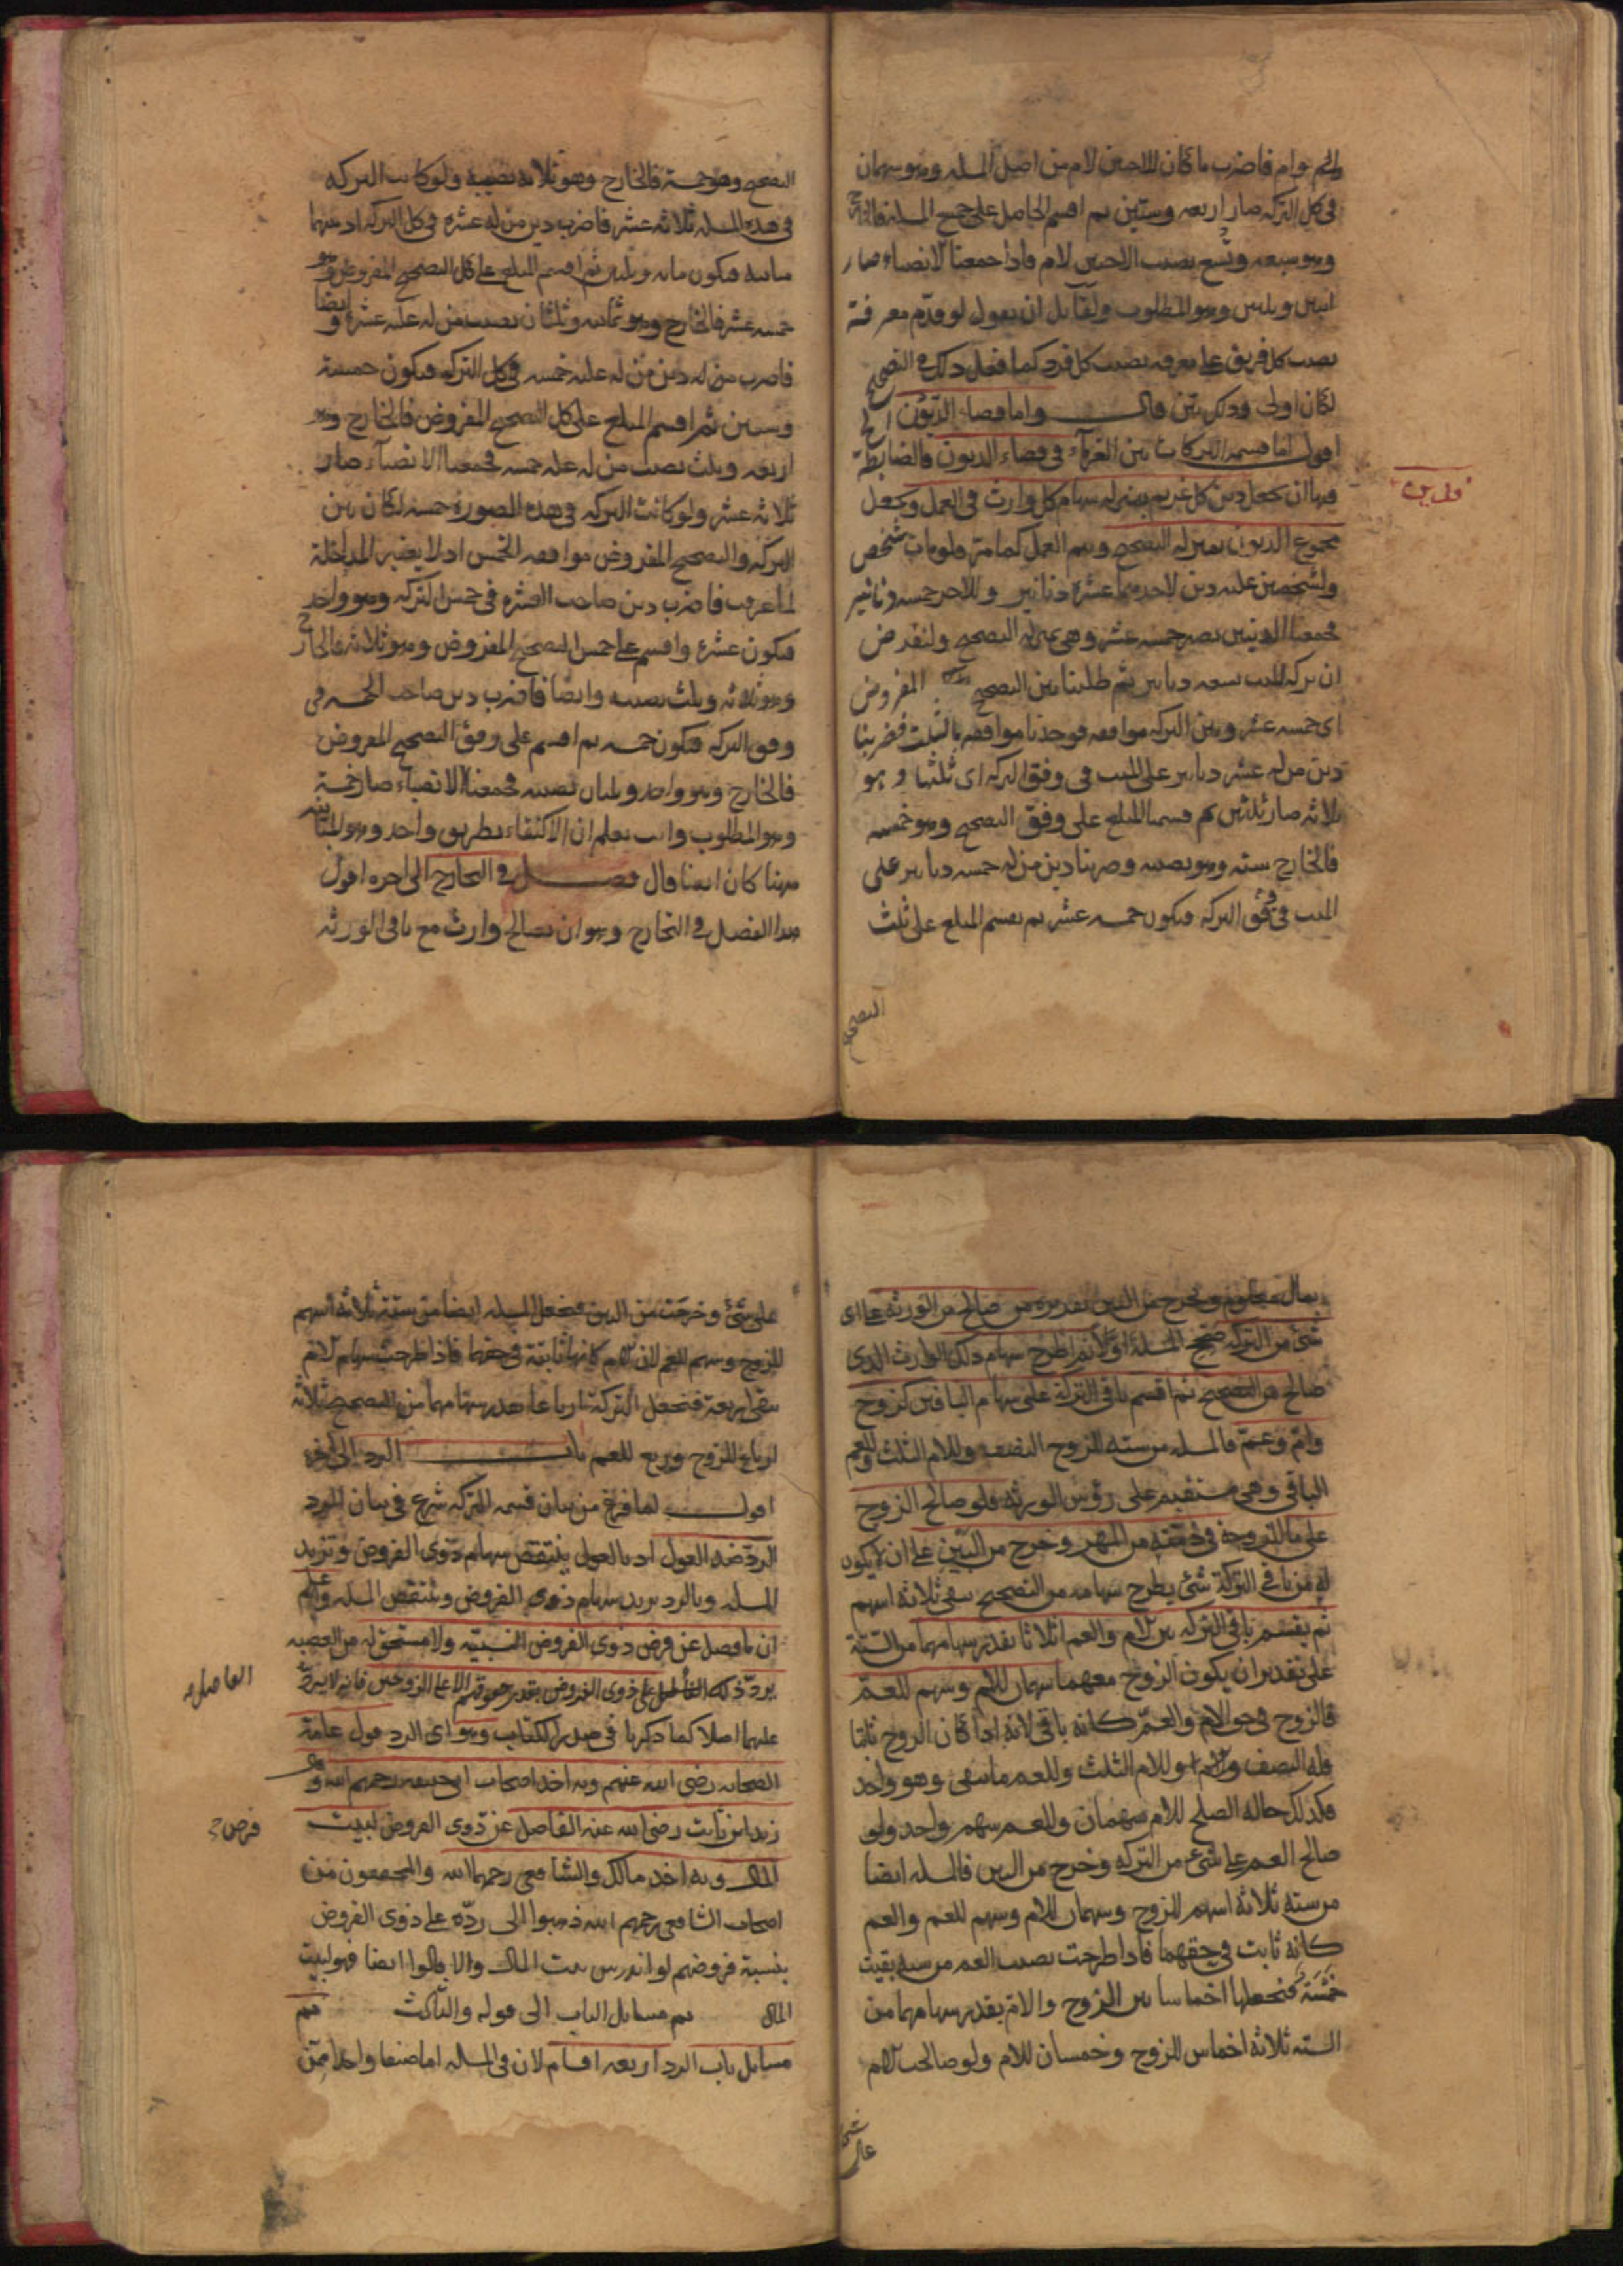 فاضرب ما كان للاختين لام من اصل المسله وهو سهمان
فى كل التركه صار اربعه وستين ثم اقسم الحاصل على جميع المسله فالخارج
وهو سبعه وتسع نصيب الاختين لام فاذا جمعنا الانصباء صار
اثنين وثلثين وهو المطلوب ولقايل ان يقول لو قدم معرفة
نصيب كل فريق على معرفه نصيب كل فرد كما فعل ذلك فى التصحيح
لكان اولى وذلك بين قال واما قضاء الديون الخ
اقول اما قسمه التركات بين الغرماء فى قضاء الديون فالضابطة
فيها ان تجعل دين كل غريم بمنزله سهام كل وارث فى العمل وتجعل
مجموع الديون بمنزله التصحيح وتتم العمل كما مر فلو مات شخص
ولشخصين عليه دين لاحدهما عشره دنانير وللاخر خمسه دنانير
فجمعنا الدينين يصير خمسه عشر وهى بمنزله التصحيح ولنفرض
ان تركه الميت تسعه دنانير ثم طلبنا بين التصحيح المفروض
اى خمسه عشر وبين التركه موافقه فوجدنا موافقه بالثلث فضربنا
دين من له عشر دنانير على الميت فى وفق التركه اى ثلثها وهو
ثلاثه صار ثلثين ثم قسمنا المبلغ على وفق التصحيح وهو خمسه
فالخارج سته وهو نصيبه وضربنا دين من له خمسه دنانير على
الميت فى وفق التركه فيكون خمسه عشر ثم نقسم المبلغ على ثلث
التصحيح
قوله دين
التصحيح وهو خمسة فالخارج وهو ثلاثه نصيبه ولو كانت التركه
فى هذه المسله ثلاثه عشر فاضرب دين من له عشره فى كل التركه اذ بينهما
مباينه فيكون مائه وثلثين ثم اقسم المبلغ على كل التصحيح المفروض وهو
خمسه عشر فالخارج وهو ثمانيه وثلثان نصيب من له عليه عشره وايضا
فاضرب دين من له عليه خمسه فى كل التركه فيكون خمسة
وستين ثم اقسم المبلغ على كل التصحيح المفروض فالخارج وهو
اربعه وثلث نصيب من له عليه خمسه فجمعنا الانصبآء صار
ثلاثه عشر ولو كانت التركه فى هذه الصورة خمسه لكان بين
التركه والتصحيح المفروض موافقه الخمس اذ لا يعتبر المداخلة
لما عرفت فاضرب دين صاحب العشره فى خمس التركه وهو واحد
فيكون عشره واقسم على خمس التصحيح المفروض وهو ثلاثه فالخارج
وهو ثلاثه وثلث نصيبه وايضا فاضرب دين صاحب الخمسه فى
وفق التركه فيكون خمسه ثم اقسم على وفق التصحيح المفروض
فالخارج وهو واحد وثلثان نصيبه فجمعنا الانصباء صار خمسة
وهو المطلوب وانت تعلم ان الاكتفاء بطريق واحد وهو المباينه
ههنا كان ايضا قال فصل فى التخارج الى اخره اقول
هذا الفصل فى التخارج وهو ان يصالح وارث مع باقى الورثه
بمال معلوم ويخرج من البين تقديره من صالح من الورثه على اى
شئ من التركه صحح المسله اولا ثم اطرح سهام ذلك الوارث الذى
صالح من التصحيح ثم اقسم باقى التركه على سهام الباقين كزوج
وام وعم فالمسله من سته للزوج النصف وللام الثلث وللعم
الباقى وهى مستقيم على رؤس الورثه فلو صالح الزوج
على ما للزوجة فى ذمته من المهر وخرج من البين على ان لا يكون
له من باقى التركة شئ يطرح سهامه من التصحيح بقى ثلاثه اسهم
ثم يقسم باقى التركه بين الام والعم اثلاثا بقدر سهامهما من الستة
على تقدير ان يكون الزوج معهما سهمان للام وسهم للعم
فالزوج فى حق الام والعم كانه باقى لانه اذا كان الزوج ثابتا
فله النصف وللام الثلث وللعم ما بقى وهو واحد
فكذلك حاله الصلح للام سهمان وللعم سهم واحد ولو
صالح العم على شئ من التركه وخرج من البين فالمسله ايضا
من سته ثلاثه اسهم للزوج وسهمان للام وسهم للعم والعم
كانه ثابت فى حقهما فاذا طرحت نصيب العم من سته بقيت
خمسة فنجعلها اخماسا بين الزوج والام بقدر سهامهما من
السته ثلاثه اخماس للزوج وخمسان للام ولو صالحت الام
على شئ
على شئ وخرجت من البين فنجعل المسله ايضا من ستة ثلاثه اسهم
للزوج وسهم للعم لان الام كانها ثابتة فى حقهما فاذا طرحت سهام الام
بقى اربعة فنجعل التركة ارباعا بقدر سهامهما من التصحيح ثلاثه
ارباع للزوج وربع للعم باب الرد الى اخره
اقول لما فرغ من بيان قسمه التركه شرع فى بيان الرد
الرد ضد العول اذ بالعول ينتقص سهام ذوى الفروض وتزيد
المسله وبالرد يزيد سهام ذوى الفروض وينتقص المسله واعلم
ان ما فضل عن فرض ذوى الفروض النسبيه ولا مستحق له من العصبه
يرد ذلك الفاضل على ذوى الفروض بقدر حقوقهم الا على الزوجين فانه لا يرد
عليهما اصلا كما ذكرنا فى صدر الكتاب وهو اى الرد قول عامة
الصحابه رضى الله عنهم وبه اخذ اصحاب ابى حنيفه رحمهم الله وقال
زيد ابن ثابت رضى الله عنه الفاضل عن ذوى الفروض لبيت
المال وبه اخذ مالك والشافعى رحمهما الله والمحققون من
اصحاب الشافعى رحمهم الله ذهبوا الى رده على ذوى الفروض
بنسبة فروضهم لو اندرس بيت المال والا قالوا ايضا فهو لبيت
المال ثم مسايل الباب الى قوله والثالث ثم
مسايل باب الرد اربعه اقسام لان فى المسله اما صنفا واحدا ممن
الفاضل
فرض